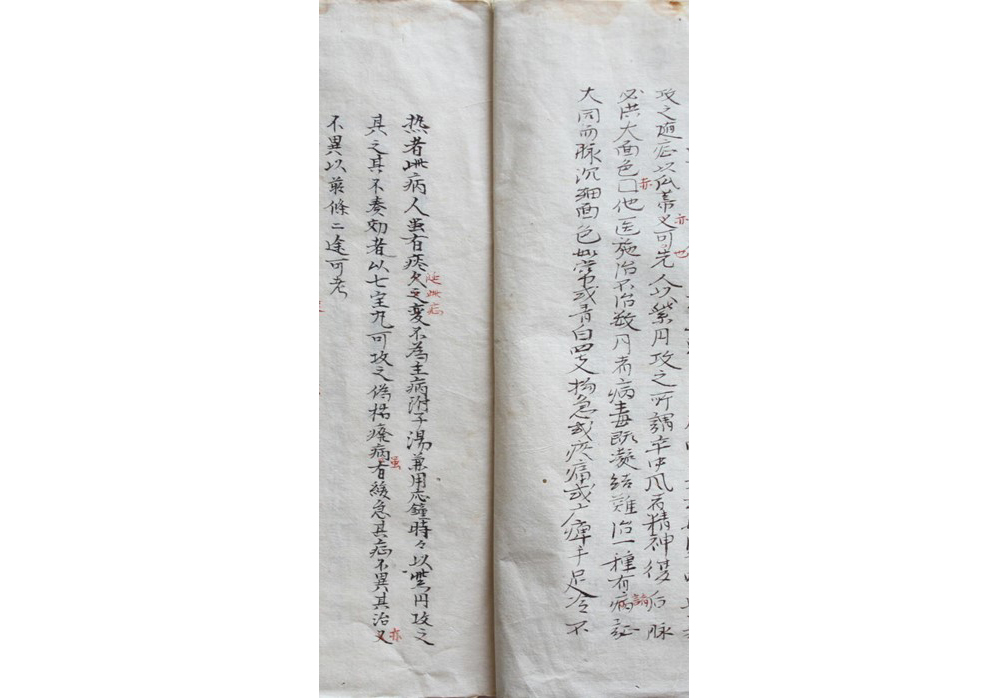 攻之適症以瓜蒂又可先人以紫円攻之所謂卒中風者精神復后脉
必洪大面色他医施治不治数月者病毒既凝結難治一種有病証
大同而脉沉細面色如常或青白四支拘急或疼痛或痺手足冷不
热者此病人虽有疼欠之変不為主病附子湯兼用応鐘時々以紫円攻之
其之其不奏効者以七宝丸可攻之偽瘫病有緩急其症不異其治又
不異以前條二途可考
亦
亦
也
論
症此症
虽
亦